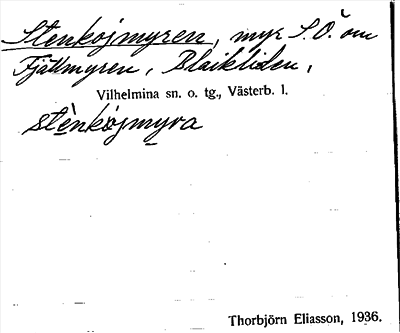 Stenkojmyren, myr S.Ö. om
Fjällmyren, Blaikliden,
Vilhelmina sn. o. tg., Västerb. l.
stènkòjmyra
Thorbjörn Eliasson, 1936.